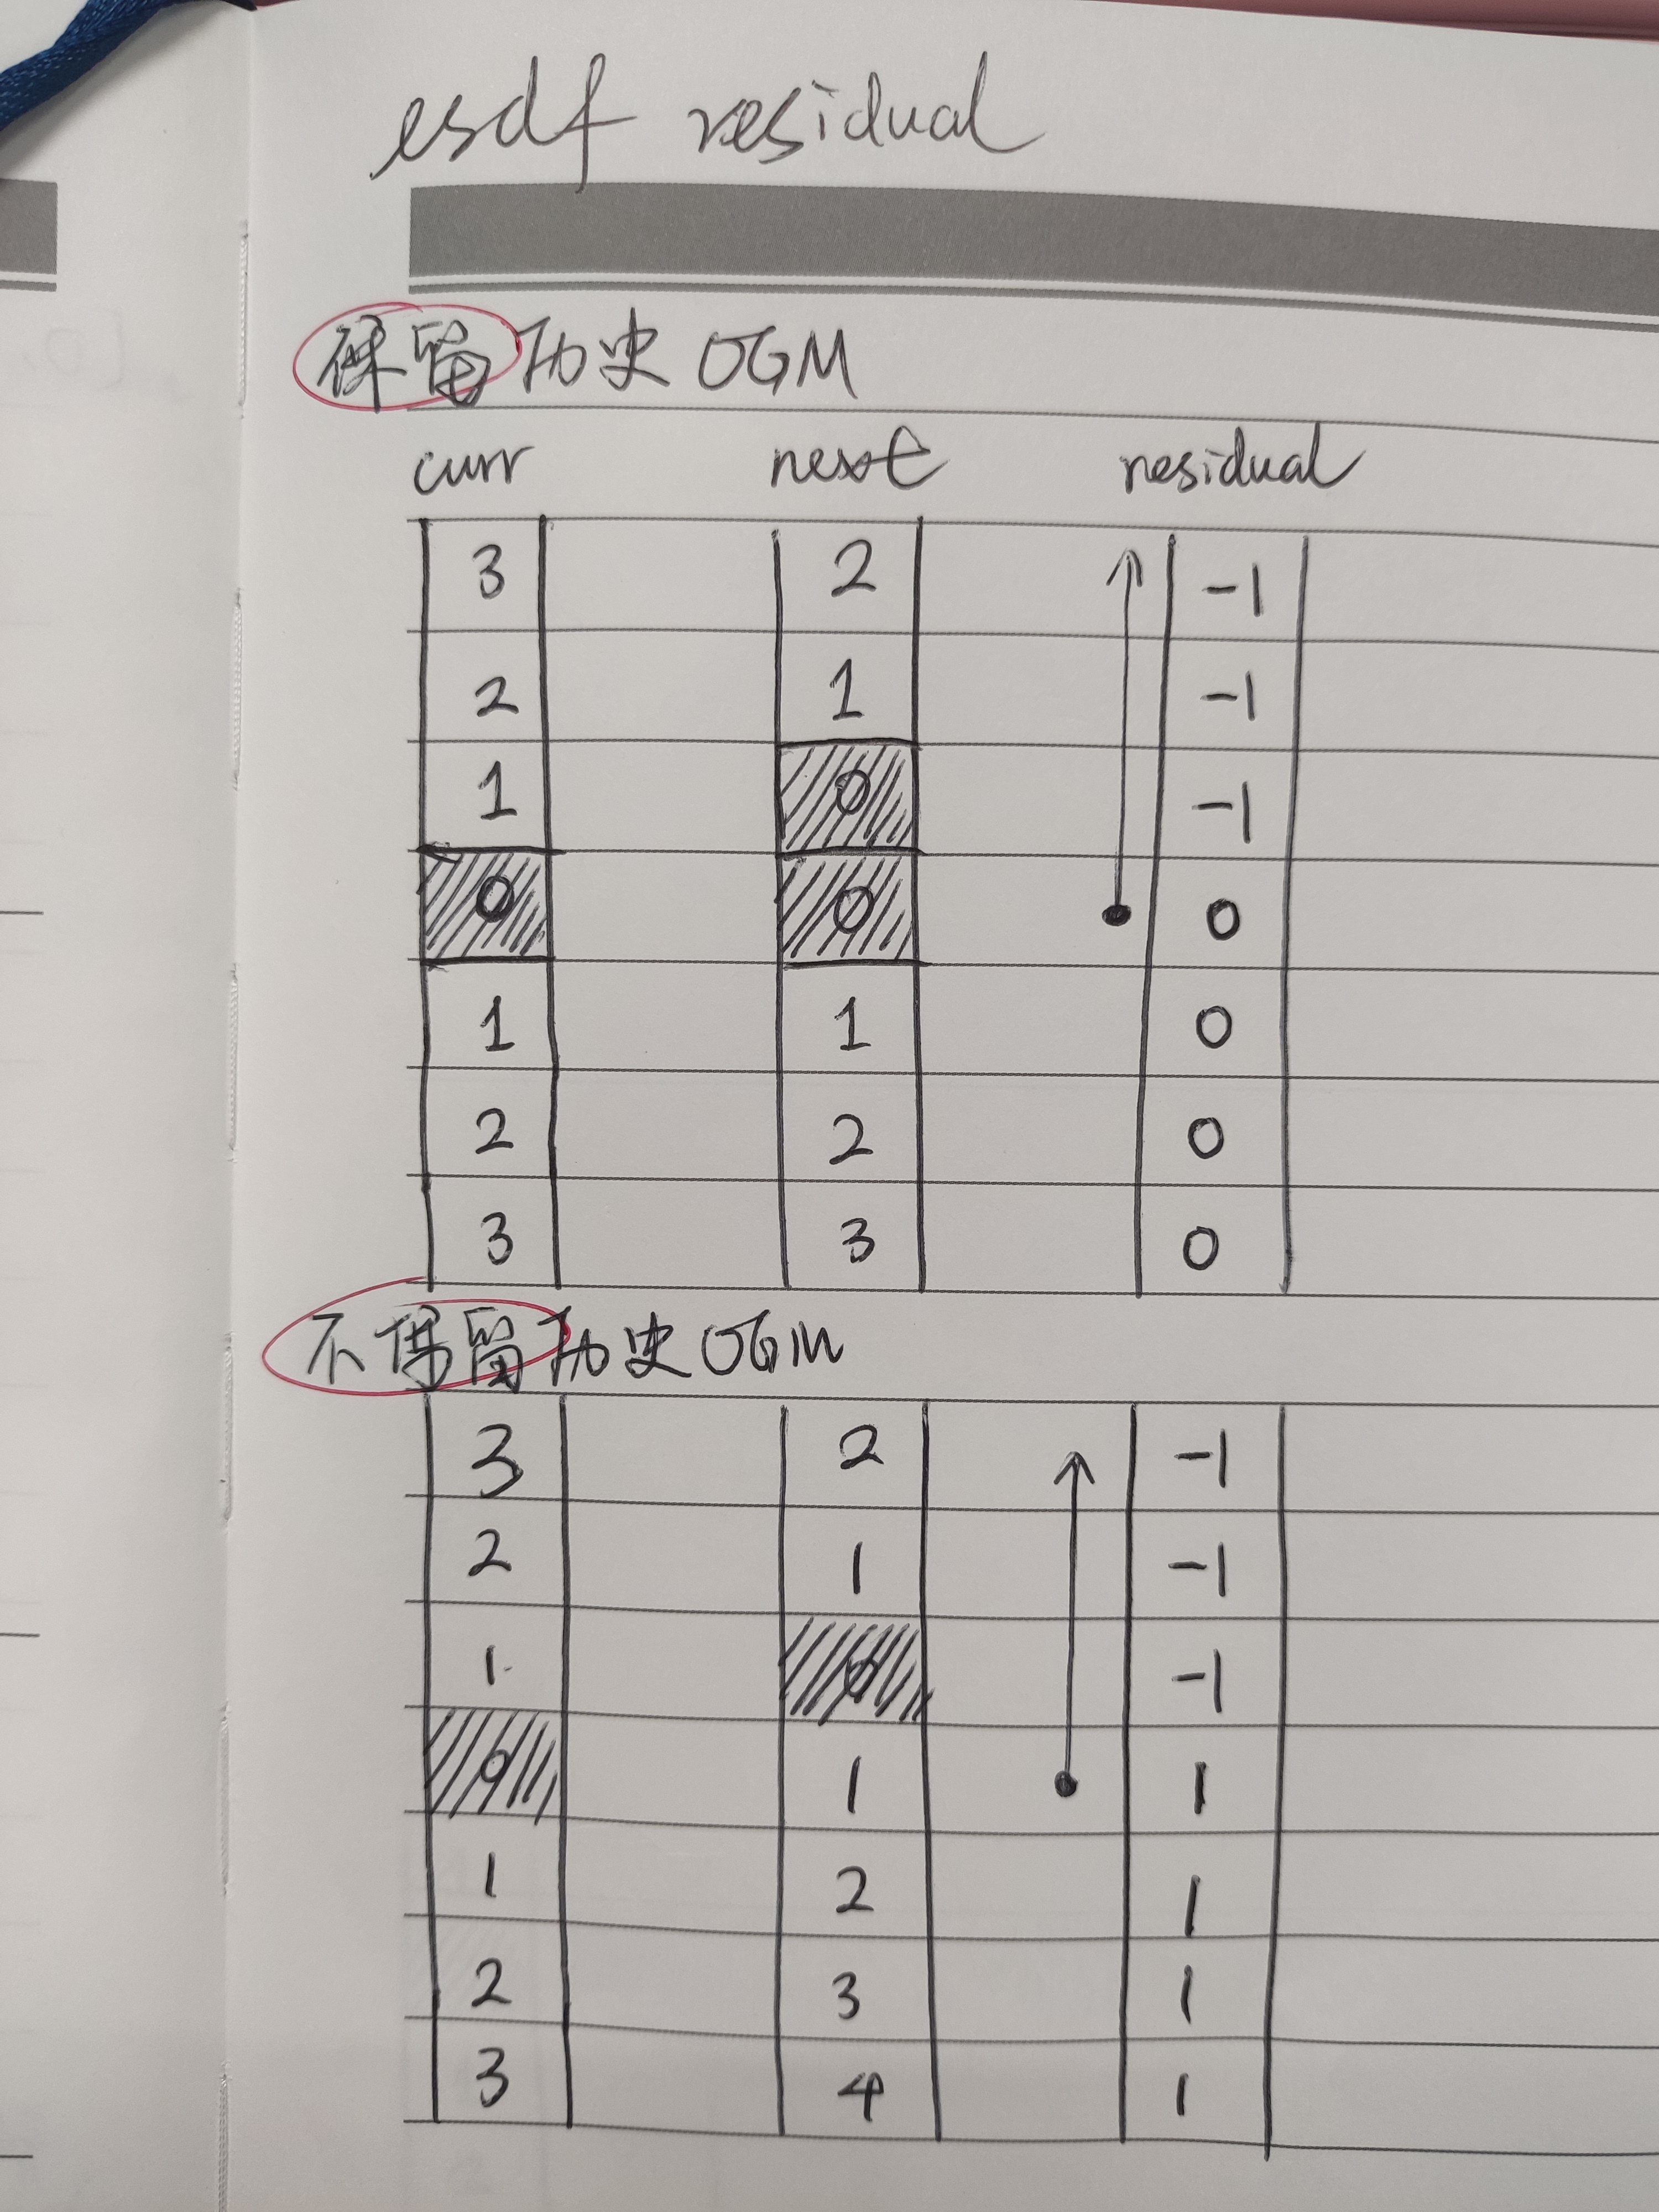 esdf residual
保留历史 OGM
curr next residual
3 2 -1
2 1 -1
1 0 -1
0 0 0
1 1 0
2 2 0
3 3 0
不保留历史 OGM
3 2 -1
2 1 -1
1 0 -1
0 1 1
1 2 1
2 3 1
3 4 1